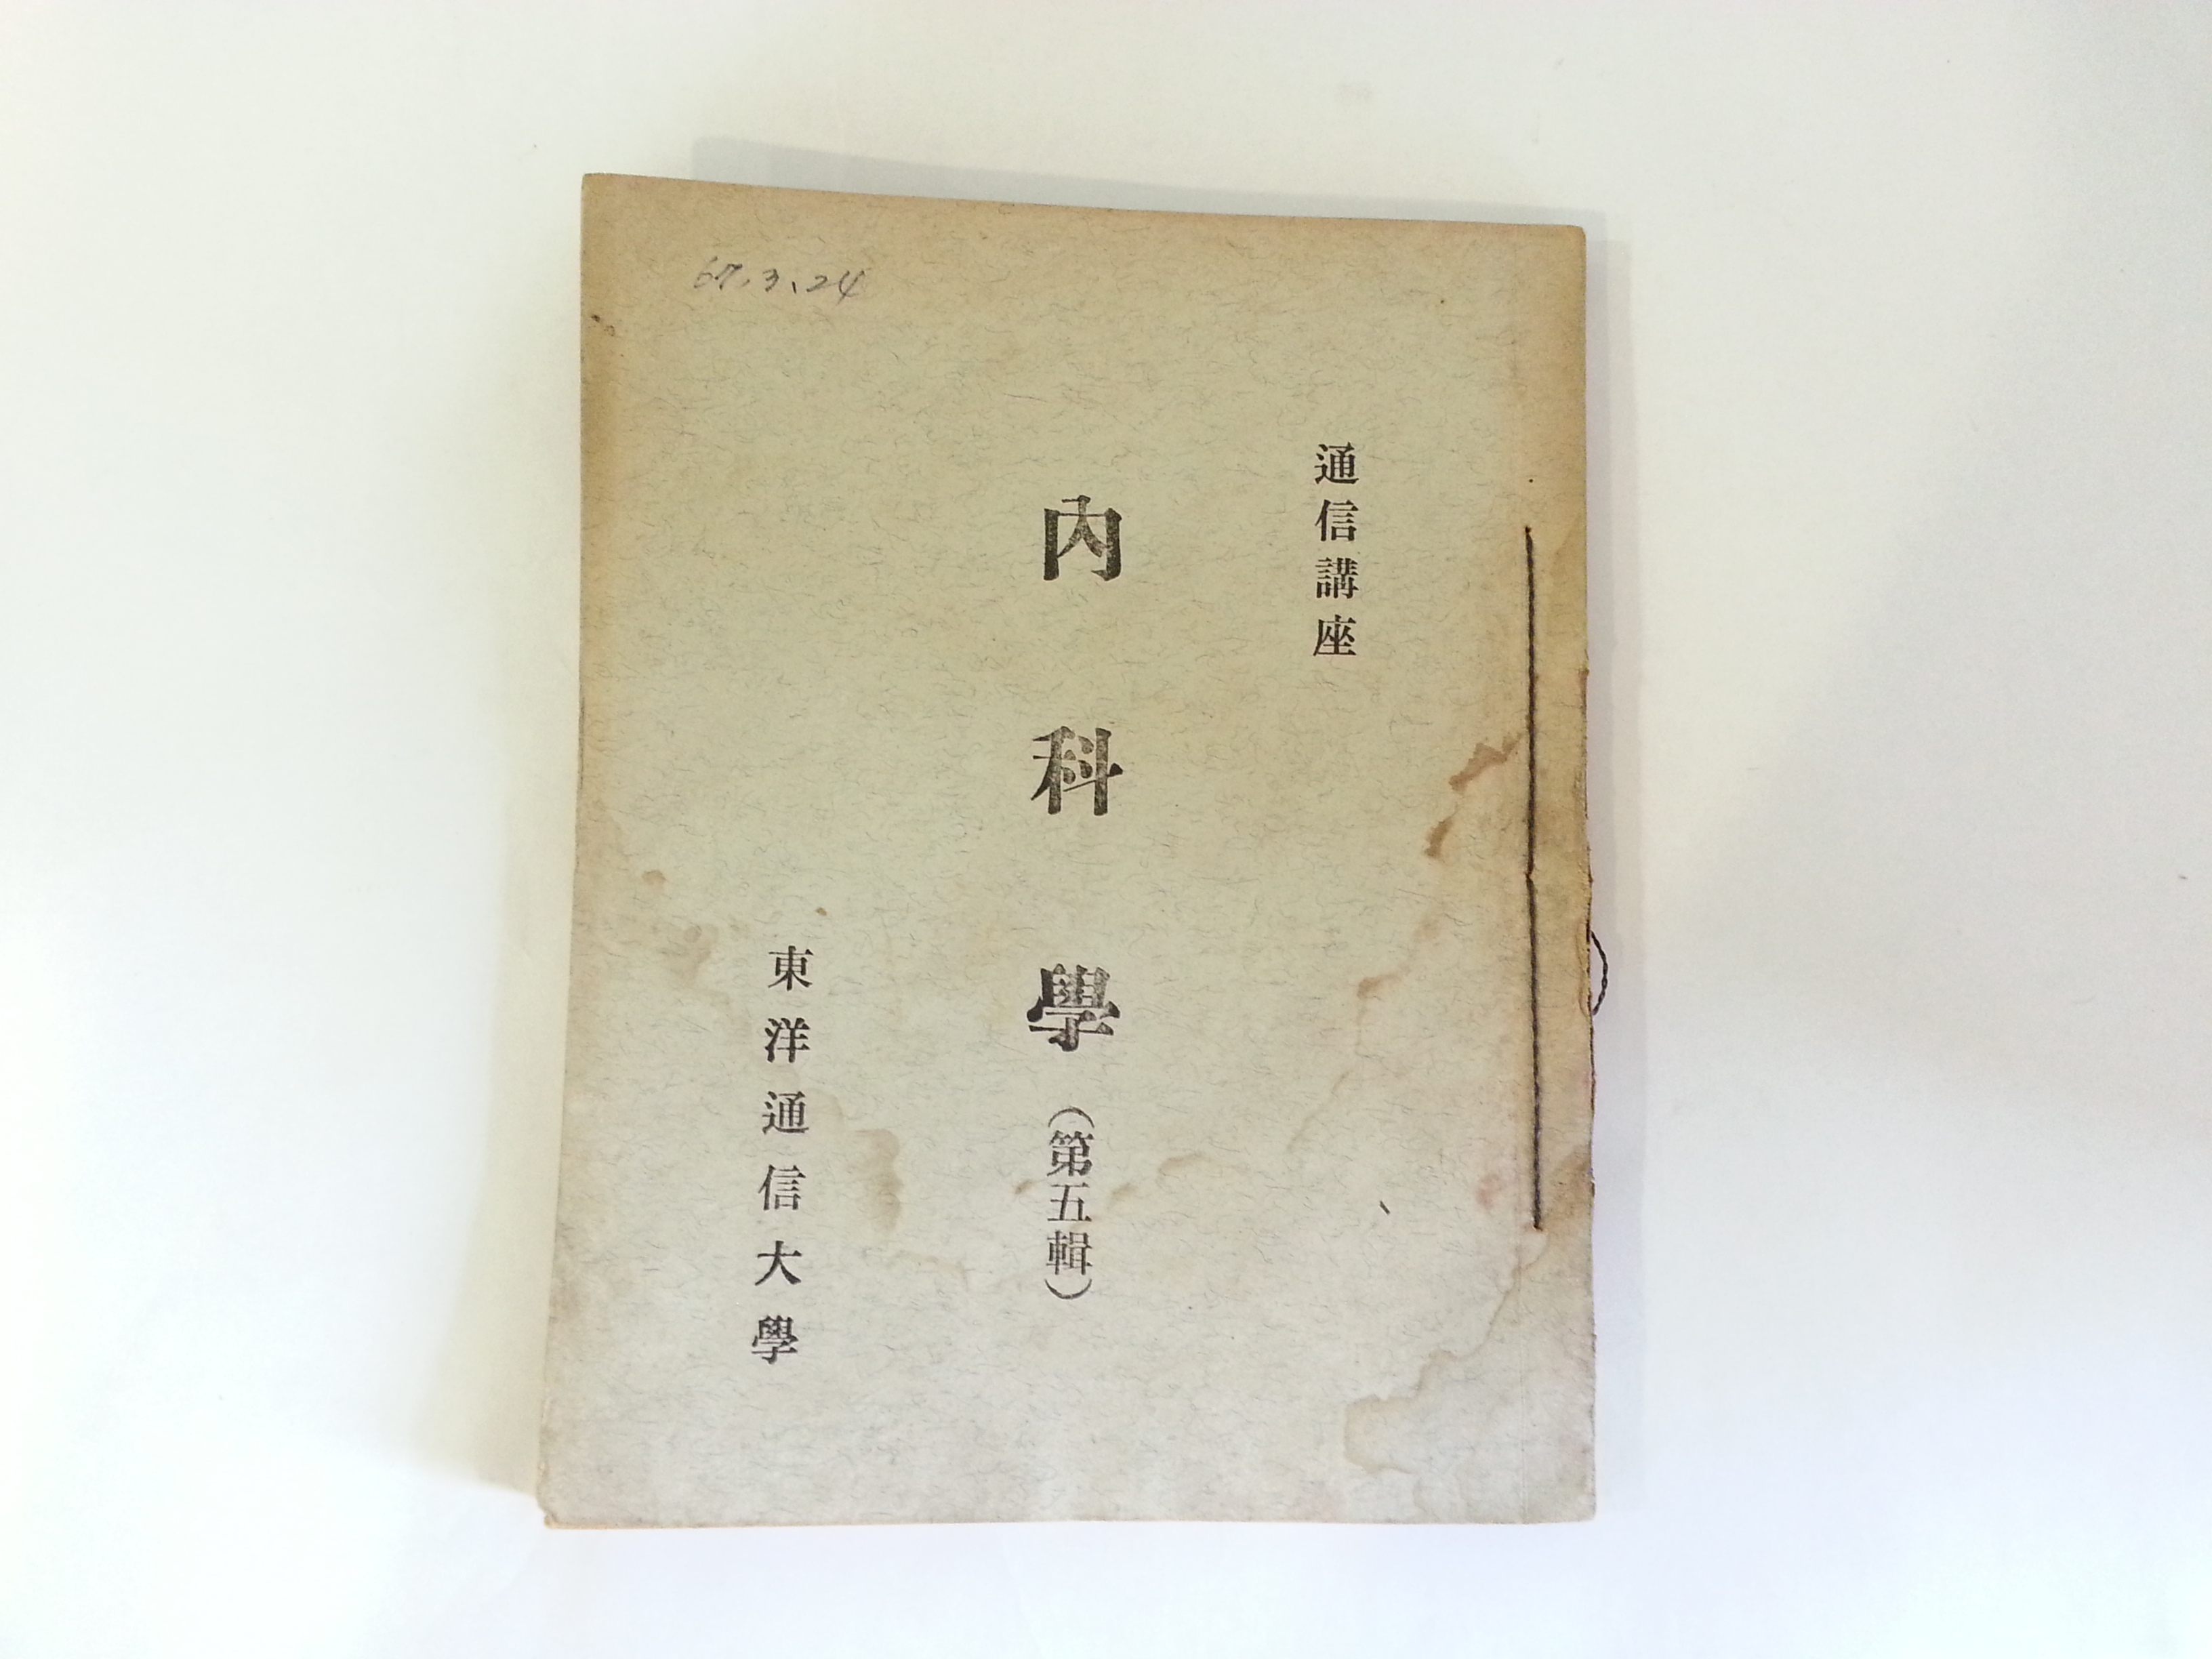 67.3.24
通信講座
內科學(第五輯)
東洋通信大學